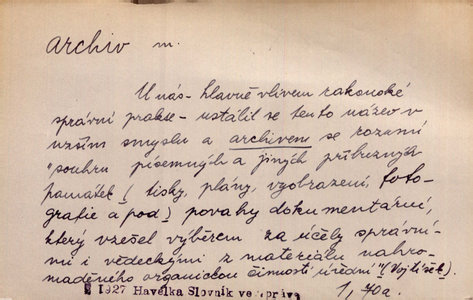 archiv m.
U nás - hlavně vlivem rakouské
správní prakse - ustálil se tento název v
užším smyslu a archivem se rozumí
"souhrn písemných a jiných příbuzných
památek ( tisky, plány, vyobrazení, foto-
grafie a pod ) povahy dokumentární,
který vzešel výběrem za účely správní-
mi i vědeckými z materiálu nahro-
maděného organickou činností úřední" ( Vojtíšek ).
1927 Havelka Slovník veř. správa
1, 70a.